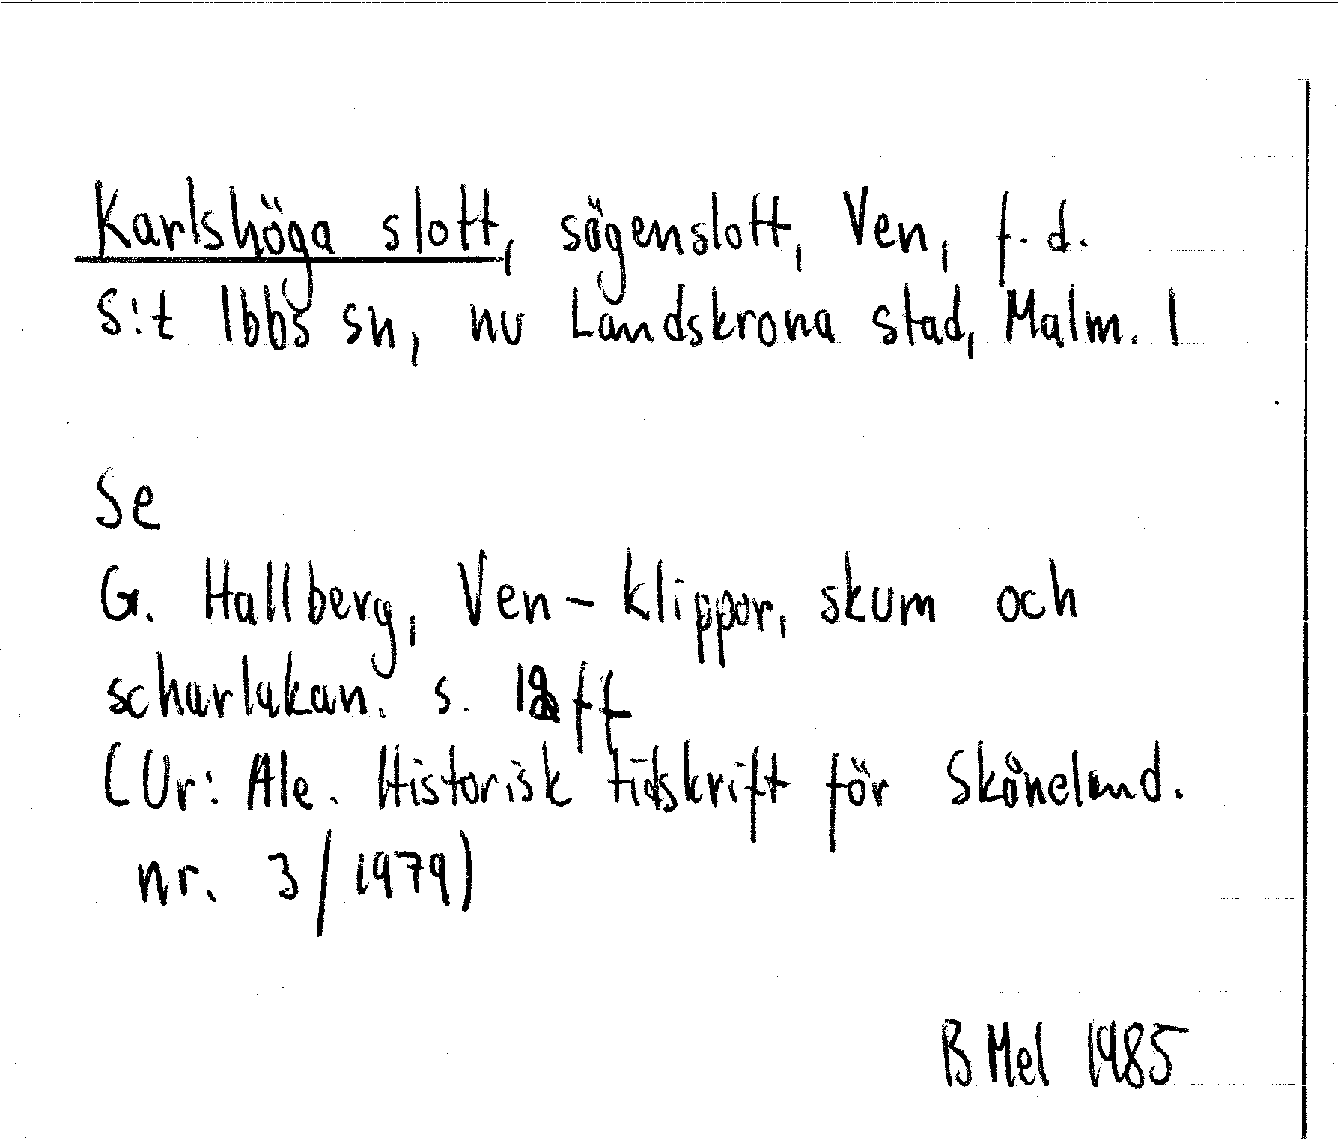 Karlshöga slott, sägenslott, Ven, f.d.
S:t Ibbs sn, nu Landskrona stad, Malm. l
Se
G. Hallberg, Ven – klippor, skum och
scharlakan. s. ff
(Ur: Ale. Historisk tidskrift för Skåneland.
nr. 3/1979)
B Mel 1985